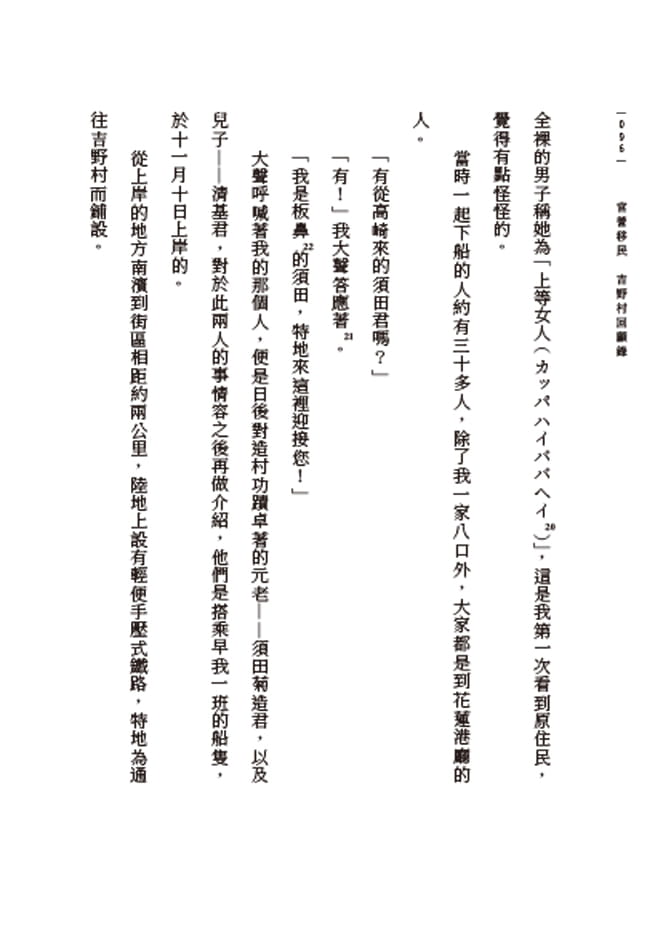 |096|　官營移民　吉野村回顧錄
全裸的男子稱她為「上等女人（カッパハイババヘイ20）」，這是我第一次看到原住民，
覺得有點怪怪的。
當時一起下船的人約有三十多人，除了我一家八口外，大家都是到花蓮港廳的
人。
「有從高崎來的須田君嗎？」
「有！」我大聲答應著21。
「我是板鼻22的須田，特地來這裡迎接您！」
大聲呼喊著我的那個人，便是日後對造村功蹟卓著的元老——須田菊造君，以及
兒子——濟基君，對於此兩人的事情容之後再做介紹，他們是搭乘早我一班的船隻，
於十一月十日上岸的。
從上岸的地方南濱到街區相距約兩公里，陸地上設有輕便手壓式鐵路，特地為通
往吉野村而鋪設。